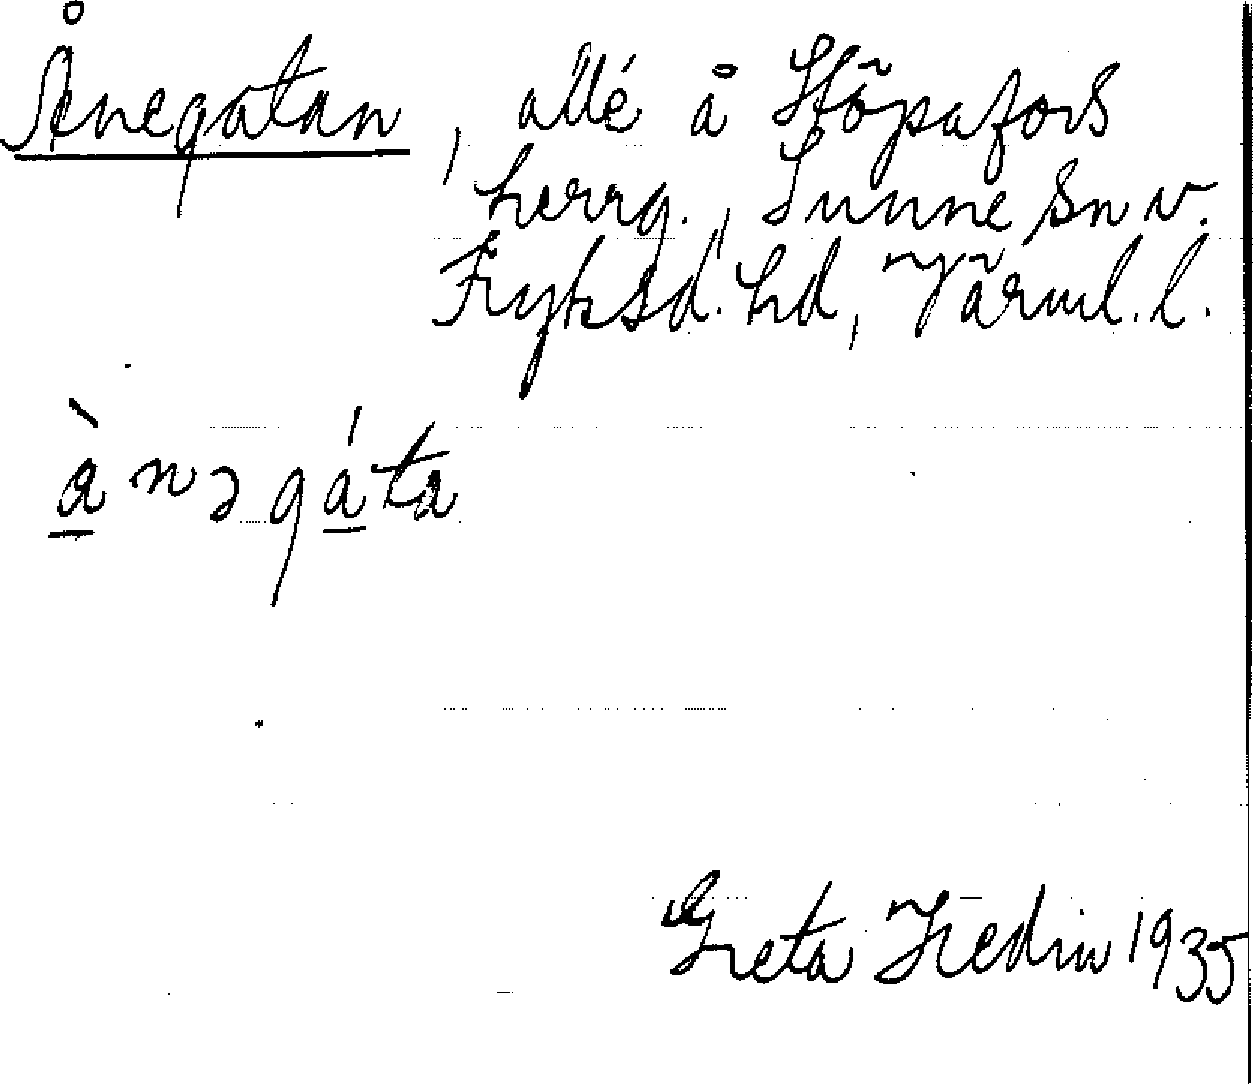 Ånegatan, allé å Stöpafors
herrg., Sunne sn v.
Fryksd. hd, Värml. l.
ànəgáta
Greta Hedin 1935